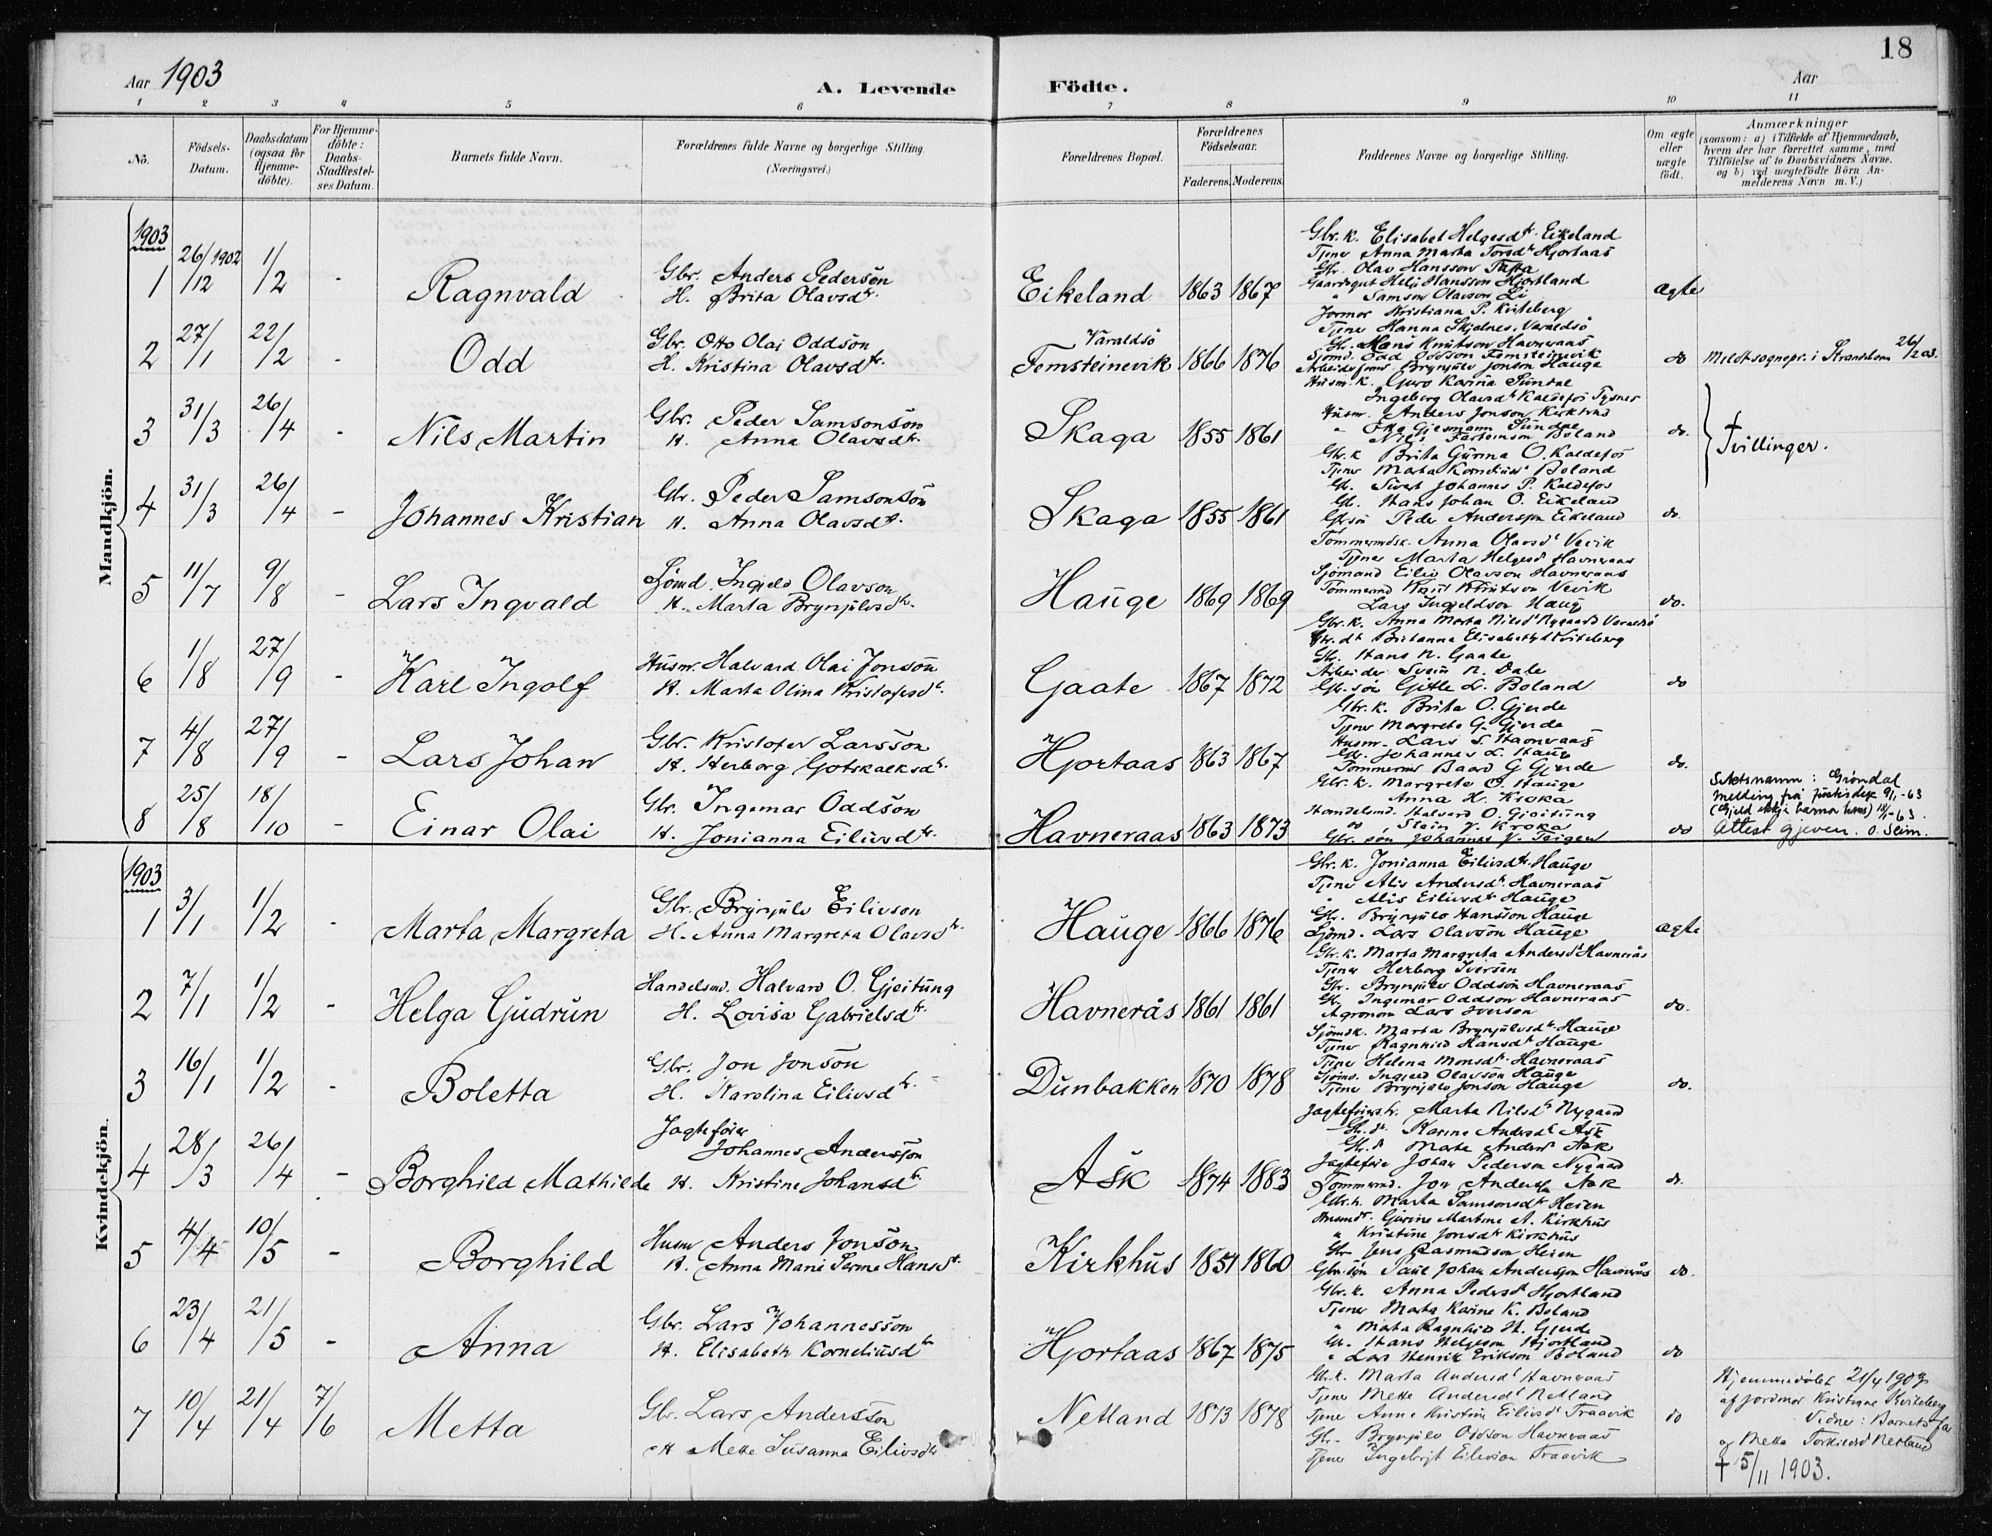 18
Aar 1903
A. Levende Födte.
Aar
1 2 3 4 5 6 7 8 9 10 11
No.
Födsels-Datum.
Daabsdatum (ogsaa for Hjemme-döbte).
For Hjemme-döbte: Daabs-Stadfæstel-ses Datum.
Barnets fulde Navn.
Forældrenes fulde Navne og borgerlige Stilling (Næringsvei.)
Forældrenes Bopæl.
Forældrenes Födselsaar.
Faderens. Moderens.
Faddernes Navne og borgerlige Stilling.
Om ægte eller uægte födt.
Anmærkninger
(saasom: a) i Tilfælde af Hjemmedaab, hvem der har forrettet samme, med Tilföielse af to Daabsvidners Navne, og b) ved uægtefödte Börn An-melderens Navn m. V.)
Mandkjön.
1903
1 26/12 1902 1/2 - Ragnvald
Gbr. Anders Pedersön
H. Brita Olavsdtr.
Eikeland 1863 1867
Gbr. k. Elisabet Helgesdtr Eikeland
Tjener Anna Marta Torsdtr Hjortaas
Gbr. Olav Hansson
Gaardsgut Helje Hansson Hjortland
" Samson Olavson Li
ægte
2 27/1 22/2 - Odd
Gbr. Otto Olai Oddsön
H. Kristina Olavsdtr.
Varaldsö
Femsteinevik 1866 1876
Jormor Kristiana P. Kviteberg
Tjener Hanna Skjelnes, Varaldsö
Gbr. Hans Knutson Havneraas
Sjömd. Odd Oddson Femsteinevik
Arbeidsform. Brynjulv Jonson Hauge
do
Meldt sognepr. i Strandebarm 26/2 03.
3 31/3 26/4 - Nils Martin
Gbr. Peder Samsonsön
H. Anna Olavsdtr.
Skaga 1855 1861
Husm. k. Guro Karina Sundae
Ingeborg Olavsdtr Kaldefos Tysnes
Husm. Anders Jonson Kirkhus
" Giesmann Sundae
Nils Boland
do.
Tvillinger.
4 31/3 26/4 - Johannes Kristian
Gbr. Peder Samsonsön
H. Anna Olavsdtr.
Skaga 1855 1861
Gbr. k Brita Gurina O. Kaldefos
Tjener Marta Kornelius Boland
Gbr. Sivert Johannes P. Kaldefos
Gbr. Hans Johan O. Eikeland
Gbrsön Peder Andersson Eikeland
do.
5 11/7 9/8 - Lars Ingvald
Sjömd. Ingjeld Olavson
H. Marta Brynjulvsdtr.
Hauge 1869 1869
Tömmermdsk. Anna Olavsdtr Vevik
Tjener Marta Helgesdtr Havneraas
Sjömand Eiliv Olavson Havneraas
Tömmermd Knut Knutson Vevik
Lars Ingjeldson Haug
do.
6 1/8 27/9 - Karl Ingolf
Husm. Halvard Olai Jonsön
H. Marta Olina Kristofersdtr.
Gaate 1867 1872
Gbr. k. Anna Marta Nilsdtr Nygaard Varaldsö
Gbr. dtr Britanna Elisabet Kviteberg
Gbr. Hans N. Gaate
Arbeider Svein N. Dale
Gbr. sön Gitle L. Boland
do
7 4/8 27/9 - Lars Johan
Gbr. Kristofer Larsson
H. Herborg Gotskalksdtr.
Hjortaas 1863 1867
Gbr. k. Brita O. Gjerde
Tjener Margreta G. Gjerde
Husm. Lars S. Havneraas
Gbr. Johannes L. Hauge
Tömmermd Baard G Gjerde
do.
8 25/8 18/10 - Einar Olai
Gbr. Ingemar Oddsön
H. Jonianna Eilivsdtr.
Havneraas 1863 1873
Gbr. k. Margreta O. Hauge
Anna H. Kroka
Handelsmd. Halvard O. Gjeitung
do Stein J. Kroka
Gbr. sön Johannes J. Teigen
do
Slektsnamn: Gröndal
melding frå justisdep 9/1-63
(Gjeld ikkje barna hans) 18/1-63.
Attest gjeven. O. Seim.
Kvindekjön.
1903
1 3/1 1/2 - Marta Margreta
Gbr. Brynjulv Eilivson
H. Anna Margreta Olavsdtr.
Hauge 1866 1876
Gbr. k. Jonianna Eilivsdtr. Hauge
Tjener Alis Andersdtr. Havneraas
" Alis Eilivsdtr Hauge
Gbr. Brynjulv Hansson Hauge
Sjömd. Lars Olavson Hauge
ægte
2 7/1 1/2 - Helga Gudrun
Handelsmd. Halvard O. Gjeitung
H. Lovisa Gabrielsdtr.
Havnerås 1861 1861
Gbr. k. Marta Margreta Andersdtr Havnerås
Tjener Herborg Iversen
Gbr. Brynjulv Oddsön Havneraas
Gbr. Ingemar Oddson Havneraas
Agronom Lars Iverson
do.
3 16/1 1/2 - Boletta
Gbr. Jon Jonsön
H. Karolina Eilivsdtr.
Dunbakken 1870 1878
Sjömdk. Marta Brynjulvsdtr. Hauge
Tjener Ragnhild Hansdtr Hauge
Tjener Helena Monsdtr. Havneraas
Sjömd. Ingjeld Olavsön Hauge
Tjener Brynjulv Jonson Hauge
do.
4 28/3 26/4 - Borghild Mathilde
Jagtefører
Johannes Andersson
H. Kristine Johansdtr.
Ask 1874 1883
Jagteförersk. Marta Nilsdtr Nygaard
Gbr. dtr. Karine Andersdtr Ask
Gbr. dtr Marte Andersdtr Ask
Jagteförer Johan Pederson Nygaard
Tömmermd. Jon Anderssön Ask
do.
5 4/4 10/5 - Borghild
Husm Anders Jonsön
H. Anna Marie Hansdtr.
Kirkhus 1851 1860
Gbr. k. Marta Samsonsdtr Heien
Husmdtr. Gurine Martine A. Kirkhus
" Kristine Jonsdtr Kirkhus
Gbr Jens Rasmusson Heien
Gbr. sön Paul Johan Andersson Havnerås
do.
6 23/4 21/5 - Anna
Gbr. Lars Johannessön
H. Elisabeth Korneliusdtr
Hjortaas 1867 1875
Gbr. k. Anna Pedersdtr Hjortland
Tjener Marta Karine K. Boland
" Marta Ragnhild H. Gjerde
Gbr. Hans Helgeson Hjortland
" Lars Henrik Erikson Boland
do
7 10/4 21/4 7/6 Metta
Gbr. Lars Anderssön
H Mette Susanna Eilivsdtr
Netland 1873 1878
Gbr. k. Marta Andersdtr Havneraas
Tjener Mette Andersdtr Netland
Tjener Anne Kristine Eilivsdtr Traavik
Gbr. Brynjulv Oddson Havneraas
Tjener Ingebrigt Eilivson Traavik
do
Hjemmedöbt 21/4 1903
af jordmor Kristiane Kviteberg
Vidne: Barnets far
og Metta Torkildsdtr Netland
† 5/11 1903.